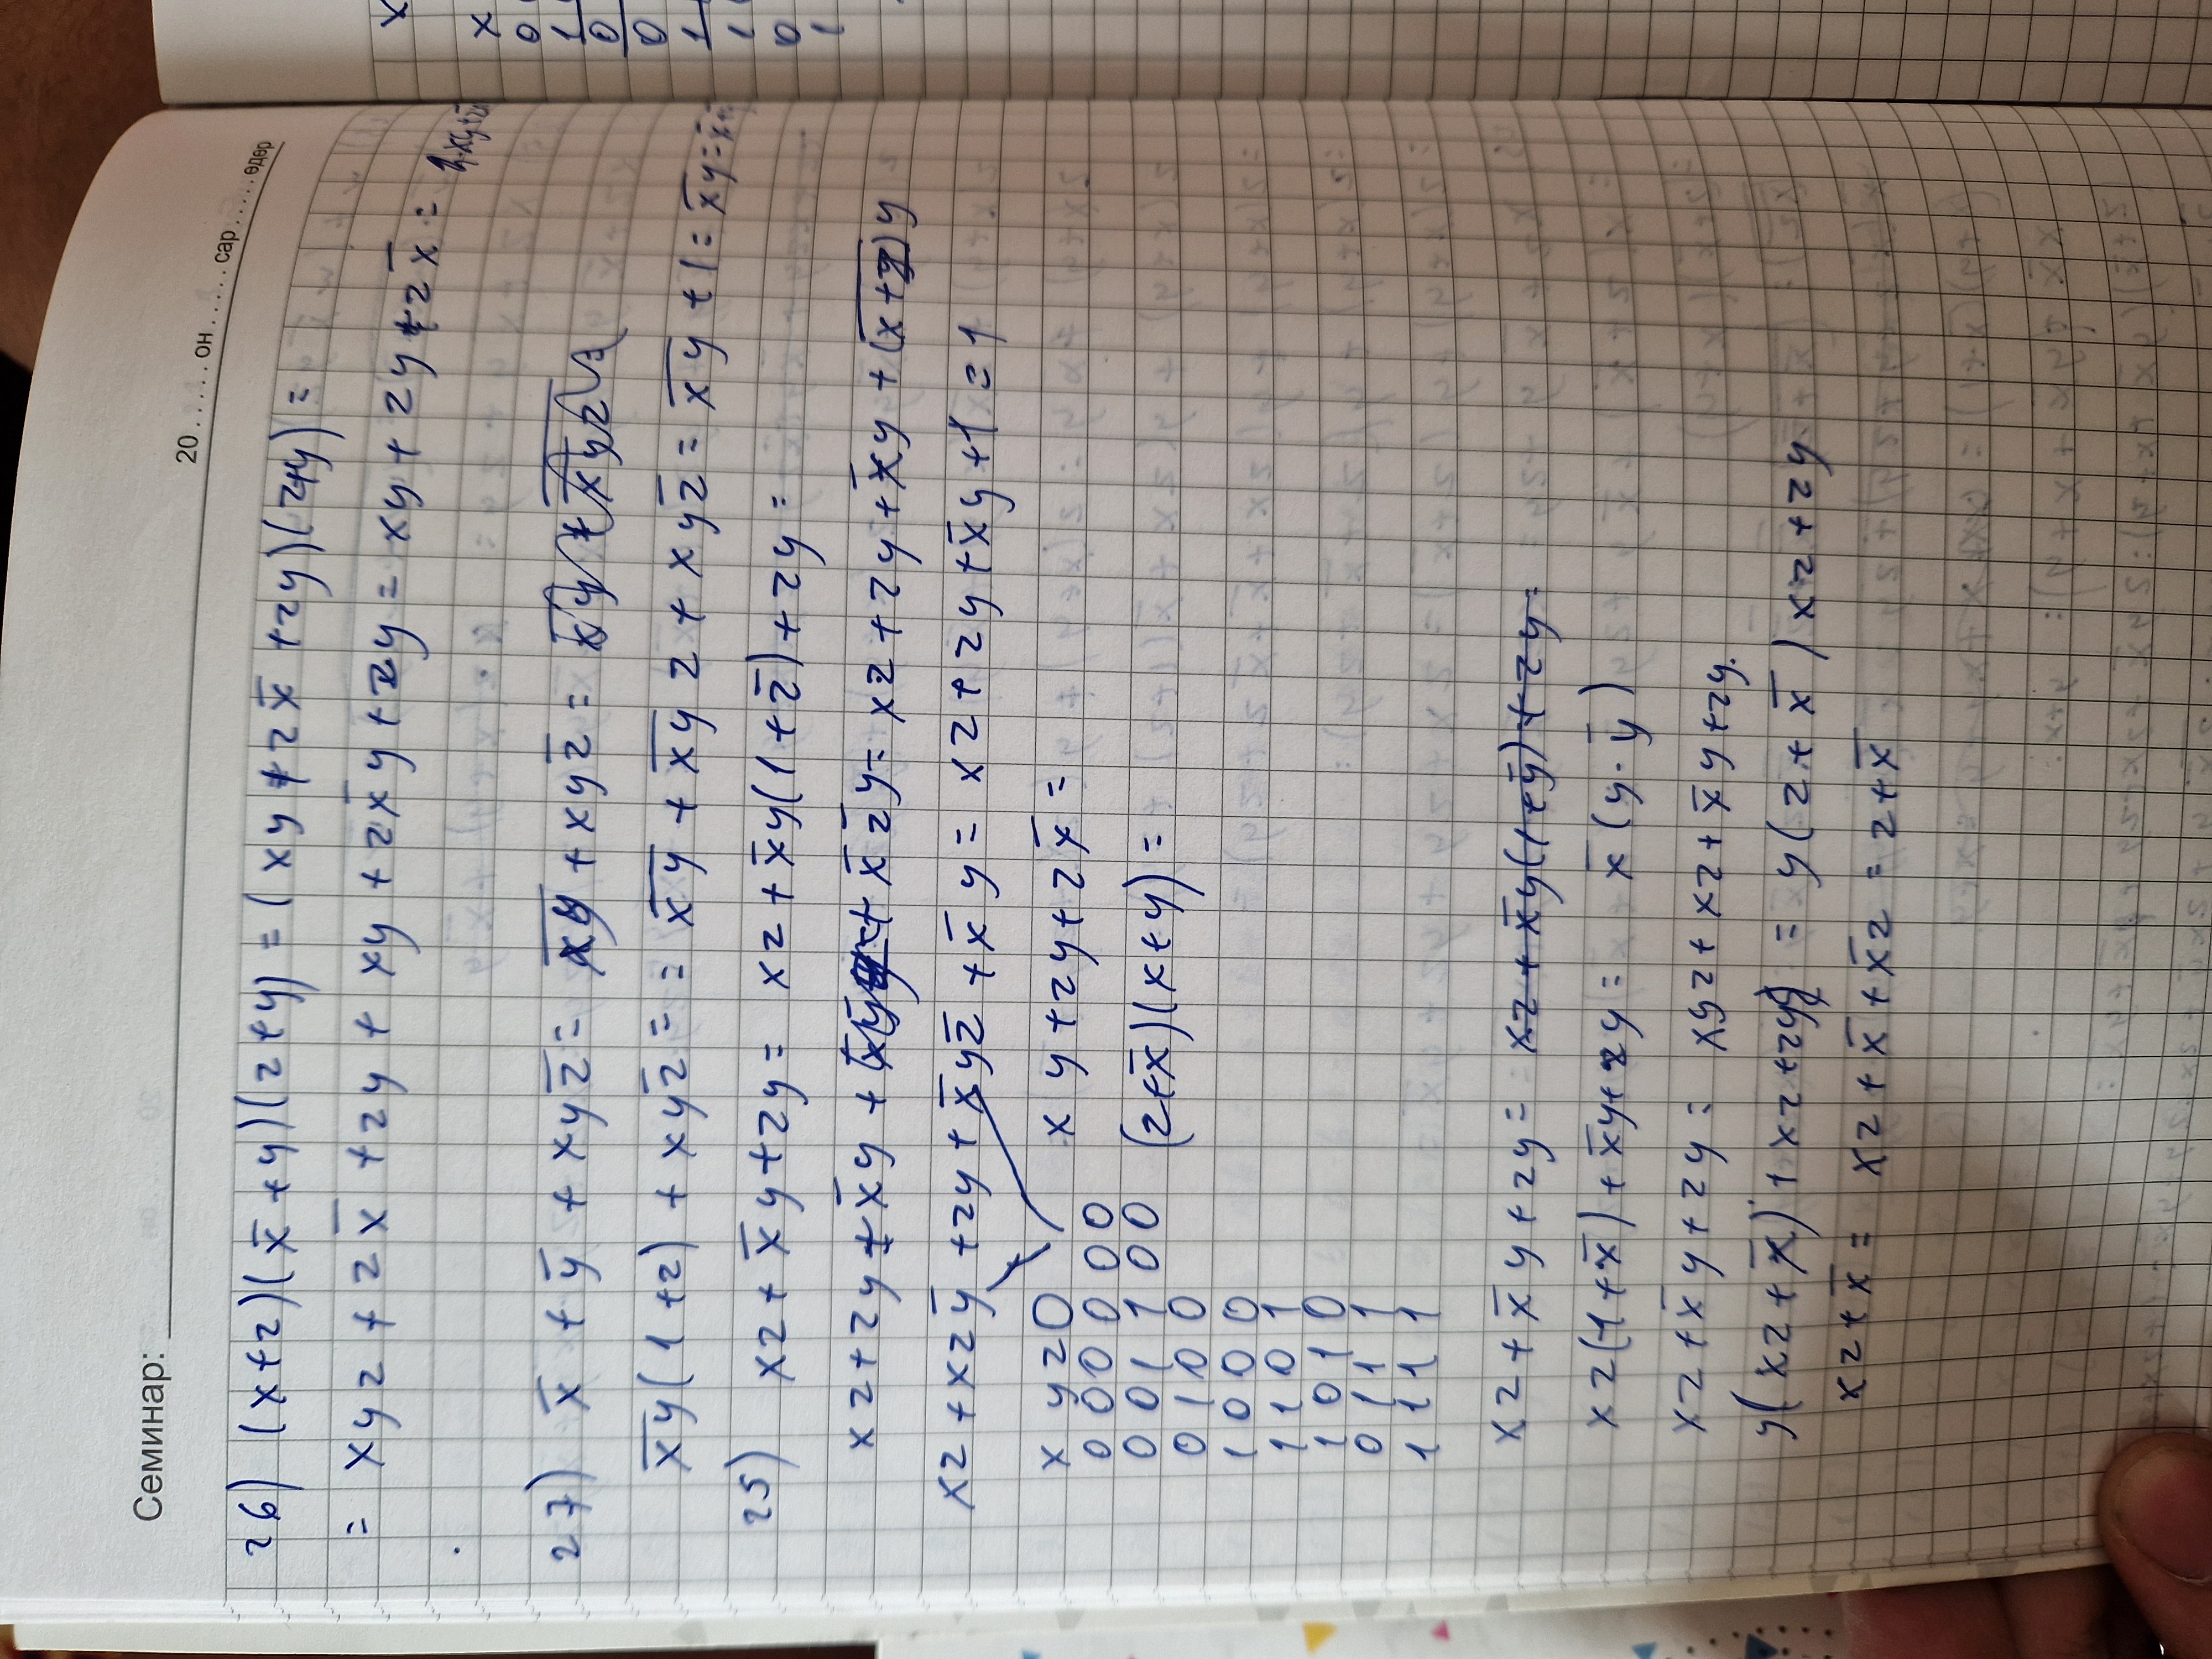 Семинар:
20 ..... он ..... сар ..... өдөр
26) (x+z)(x̅+y)(z+y) = (xy+zx̅+zy)(z+y) =
= xyz + zx̅ + zy + xy + zx̅y + zy = xy + zy + zx̅ =
27) x̅ + y̅ + xyz̅ = x̅y̅ + xyz̅ =
x̅y̅(1+z) + xyz̅ = = x̅y̅ + x̅y̅ z + xyz̅ = x̅y̅ + 1 = x̅y̅ =
25) xz + x̅y + zy = xz + x̅y(1+z̅) + zy =
xz + zy + x̅y + + x̅z̅y = xz + zy + x̅y + (x̅+̅z̅)y
xz + xzy̅ + zy + x̅yz̅ + x̅y = xz + zy + x̅y + 1 = 1
x y z 0 x y + zy + zx̅ =
0 0 0 0 0 0
0 0 1 1 0 0 (z+x̅)(x+y) =
0 1 0 0
1 0 0 0
1 1 0 1
1 0 1 0
0 1 1 1
1 1 1 1
xz + x̅y + zy = xz + x̅y(1+y̅) + zy =
xz(1+x̅) + x̅y + zy = x̅(y·y̅)
xz + x̅y + zy = xyz + xz + x̅y + zy.
y(xz + x̅) + xz + zy = y(z + x̅) xz + zy
xz + x̅ = xz + x̅ + x̅z = z + x̅
x
x
0
1
0
0
1
1
0
1